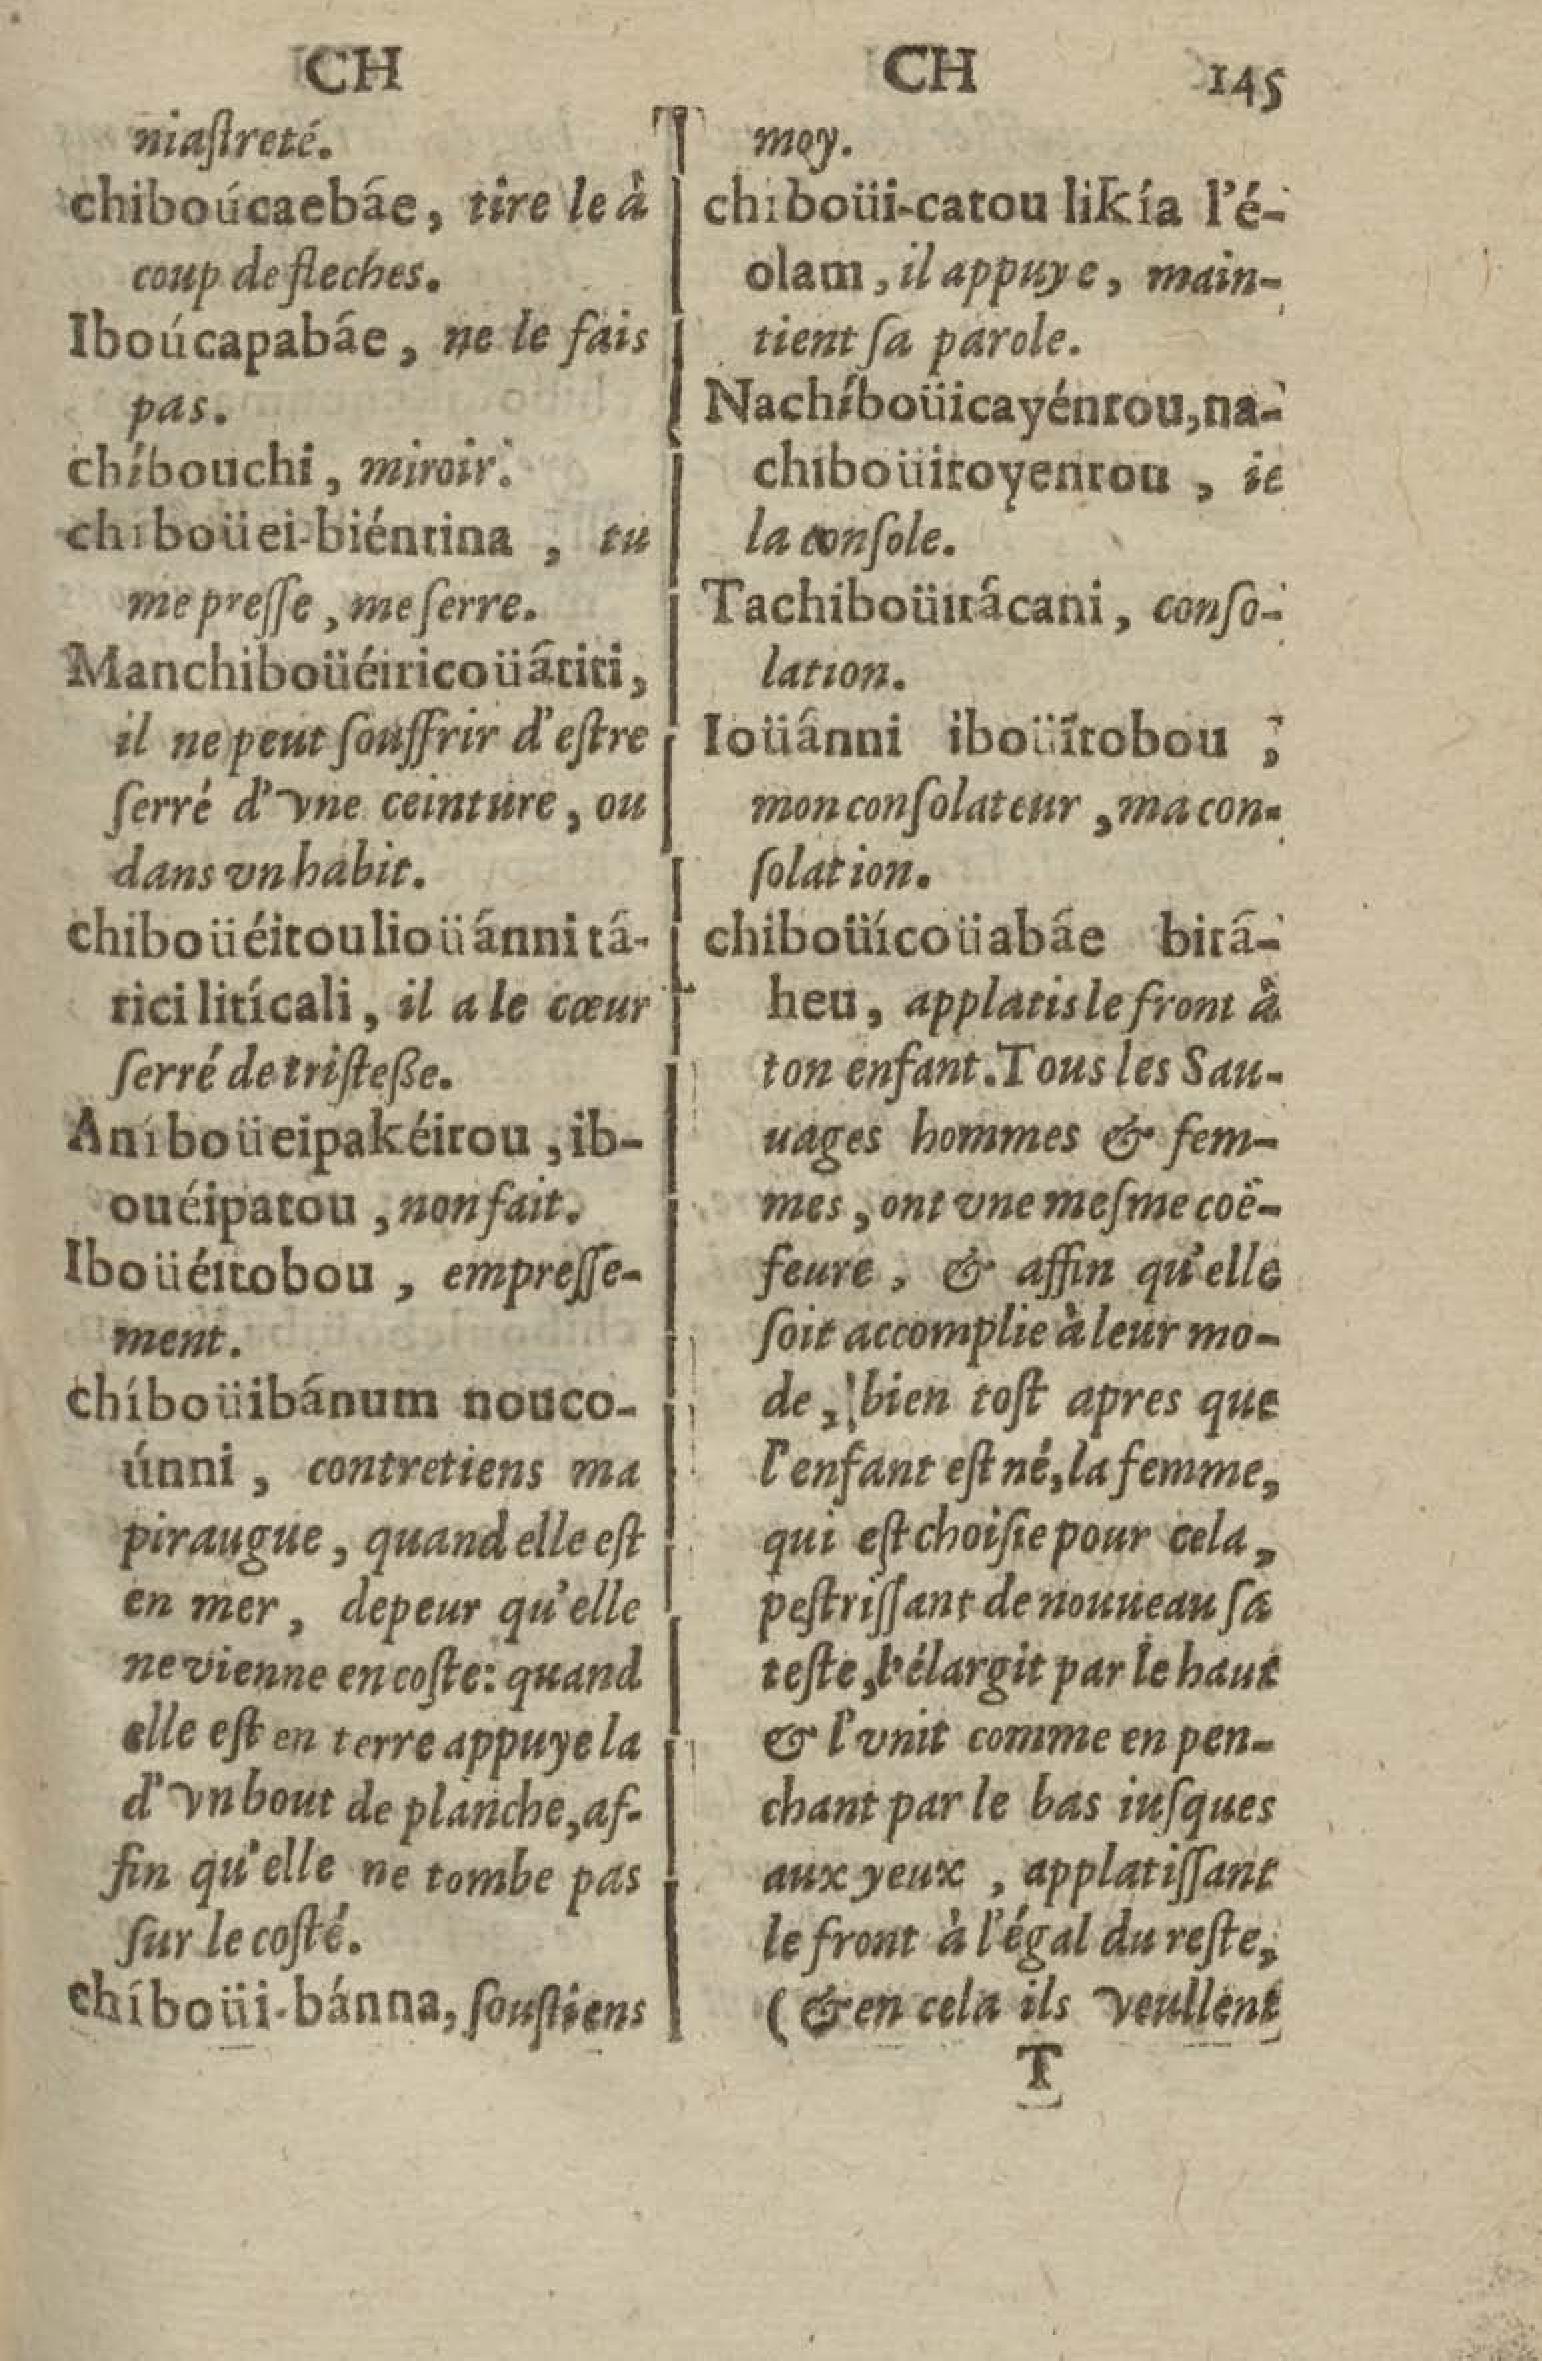 CH
niaſtreté.
chiboúcaebâe, tire le à
coup de fleches.
Iboúcapabâe, ne le fais
pas.
chíbouchi, miroir.
chiboüei-biéntina, tu
me preſſe, me ſerre.
Manchiboüéiricoüâtiti,
il ne peut ſouffrir d'eſtre
ſerré d'vne ceinture, ou
dans vn habit.
chiboüéitoulioüánni tâ-
tici litícali, il a le cœur
ſerré de triſteße.
Aníboüeipakéitou, ib-
ouéipatou, non fait.
Iboüéitobou, empreſſe-
ment.
chíboüibánum nouco-
únni, contretiens ma
piraugue, quand elle eſt
en mer, depeur qu'elle
ne vienne en coſte: quand
elle eſt en terre appuye la
d'vn bout de planche, af-
fin qu'elle ne tombe pas
ſur le coſté.
chíboüi-bánna, ſouſtiens
CH 145
moy.
chiboüi-catou likía l'é-
olam, il appuye, main-
tient ſa parole.
Nachíboüicayéntou, na-
chiboüitoyentou, ie
la conſole.
Tachiboüitâcani, conſo-
lation.
Ioüánni iboüîtobou,
mon conſolateur, ma con-
ſolation.
chiboüícoüabâe bitâ-
heu, applatis le front à
ton enfant. Tous les Sau-
uages hommes & fem-
mes, ont vne meſme coë-
feure, & affin qu'elle
ſoit accomplie à leur mo-
de, bien toſt apres que
l'enfant eſt né, la femme,
qui eſt choiſie pour cela,
peſtriſſant de nouueau ſa
teſte, l'élargit par le haut
& l'vnit comme en pen-
chant par le bas iuſques
aux yeux, applatiſſant
le front à l'égal du reſte,
(& en cela ils veullent
T